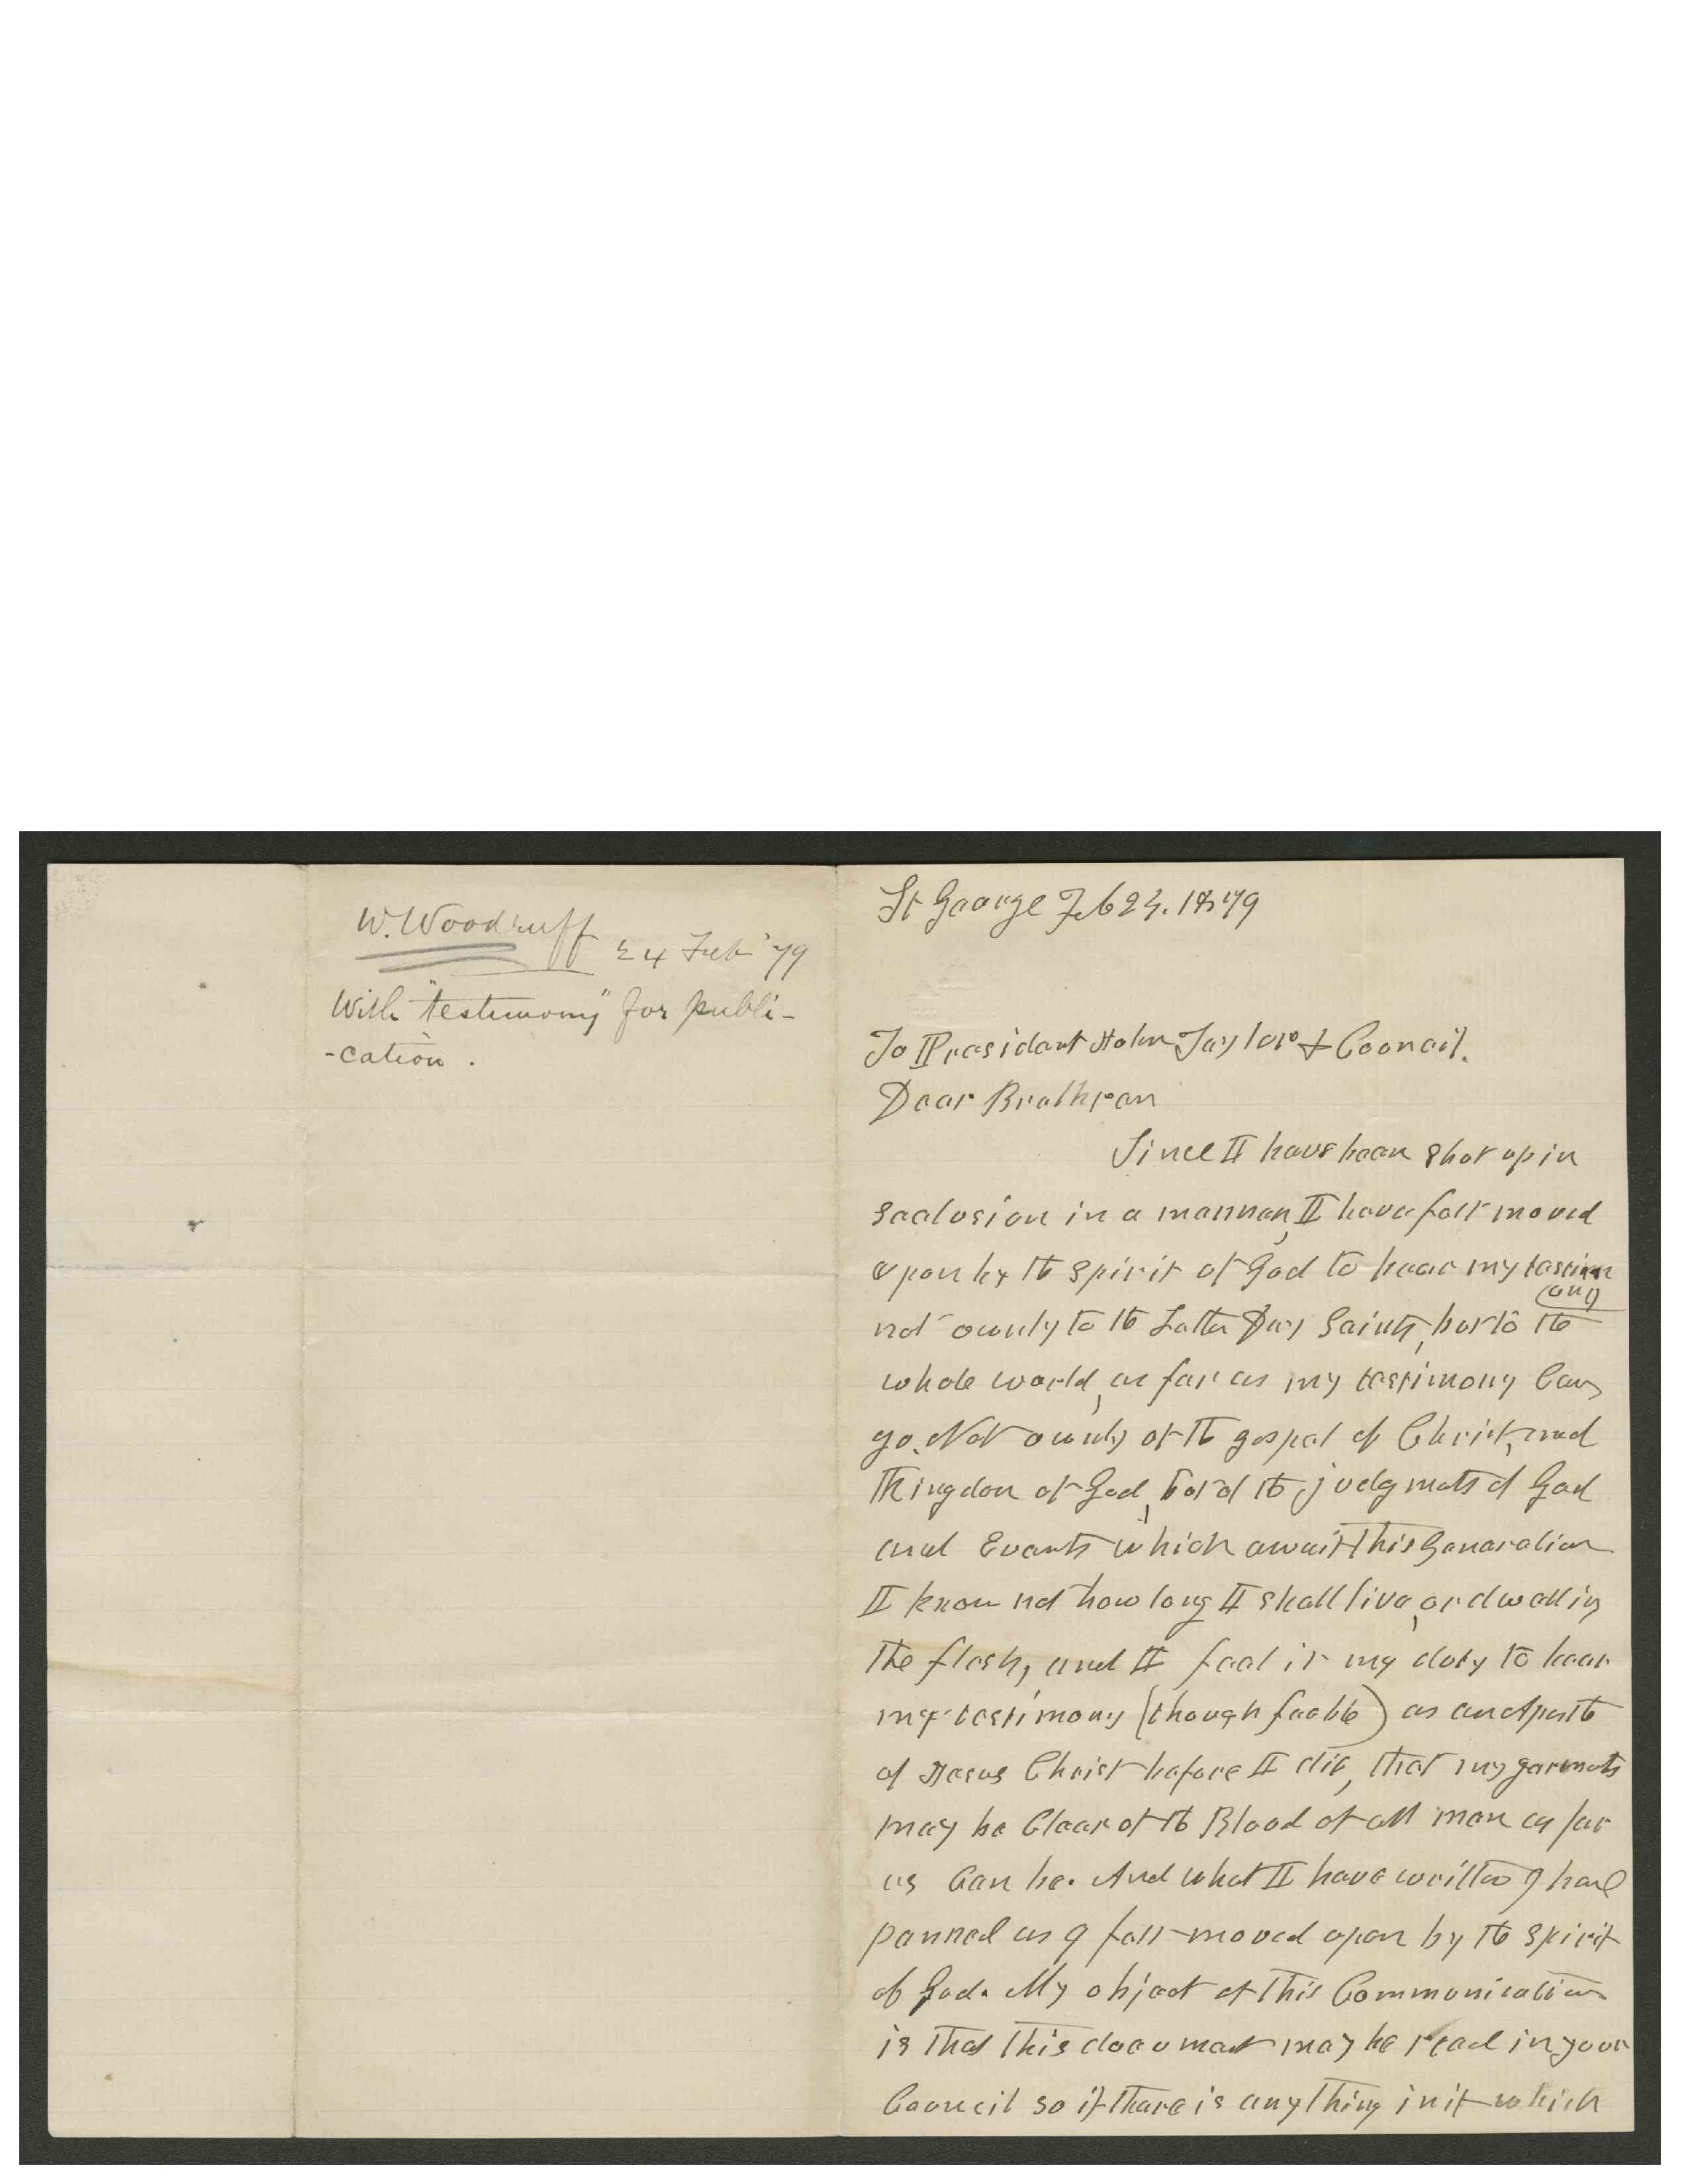 W. Woodruff
24 Feb '79
With "testimony" for publi-
-cation.
St George Feb 24. 1879
To President John Taylor & Council.
Dear Brethren
Since I have been shut up in
seclusion in a manner, I have felt moved
upon by the spirit of God to bear my testim
(ony
not ownly to the Latter Day Saints, but to the
whole world, as far as my testimony Can
go. Not ownly of the gospel of Christ, and
Kingdom of God, but of the judgmets of God
and Events which await this Generation
I know not how long I shall live, or dwell in
the flesh, and I feel it my duty to bear
my testimony (though feeble) as an Apostle
of Jesus Christ before I die, that my garmets
may be Clear of the Blood of all men as far
as Can be. And what I have written I have
penned as I felt moved upon by the spirit
of God. My object of this Communication
is that this document may be read in your
Council so if there is any thing in it which